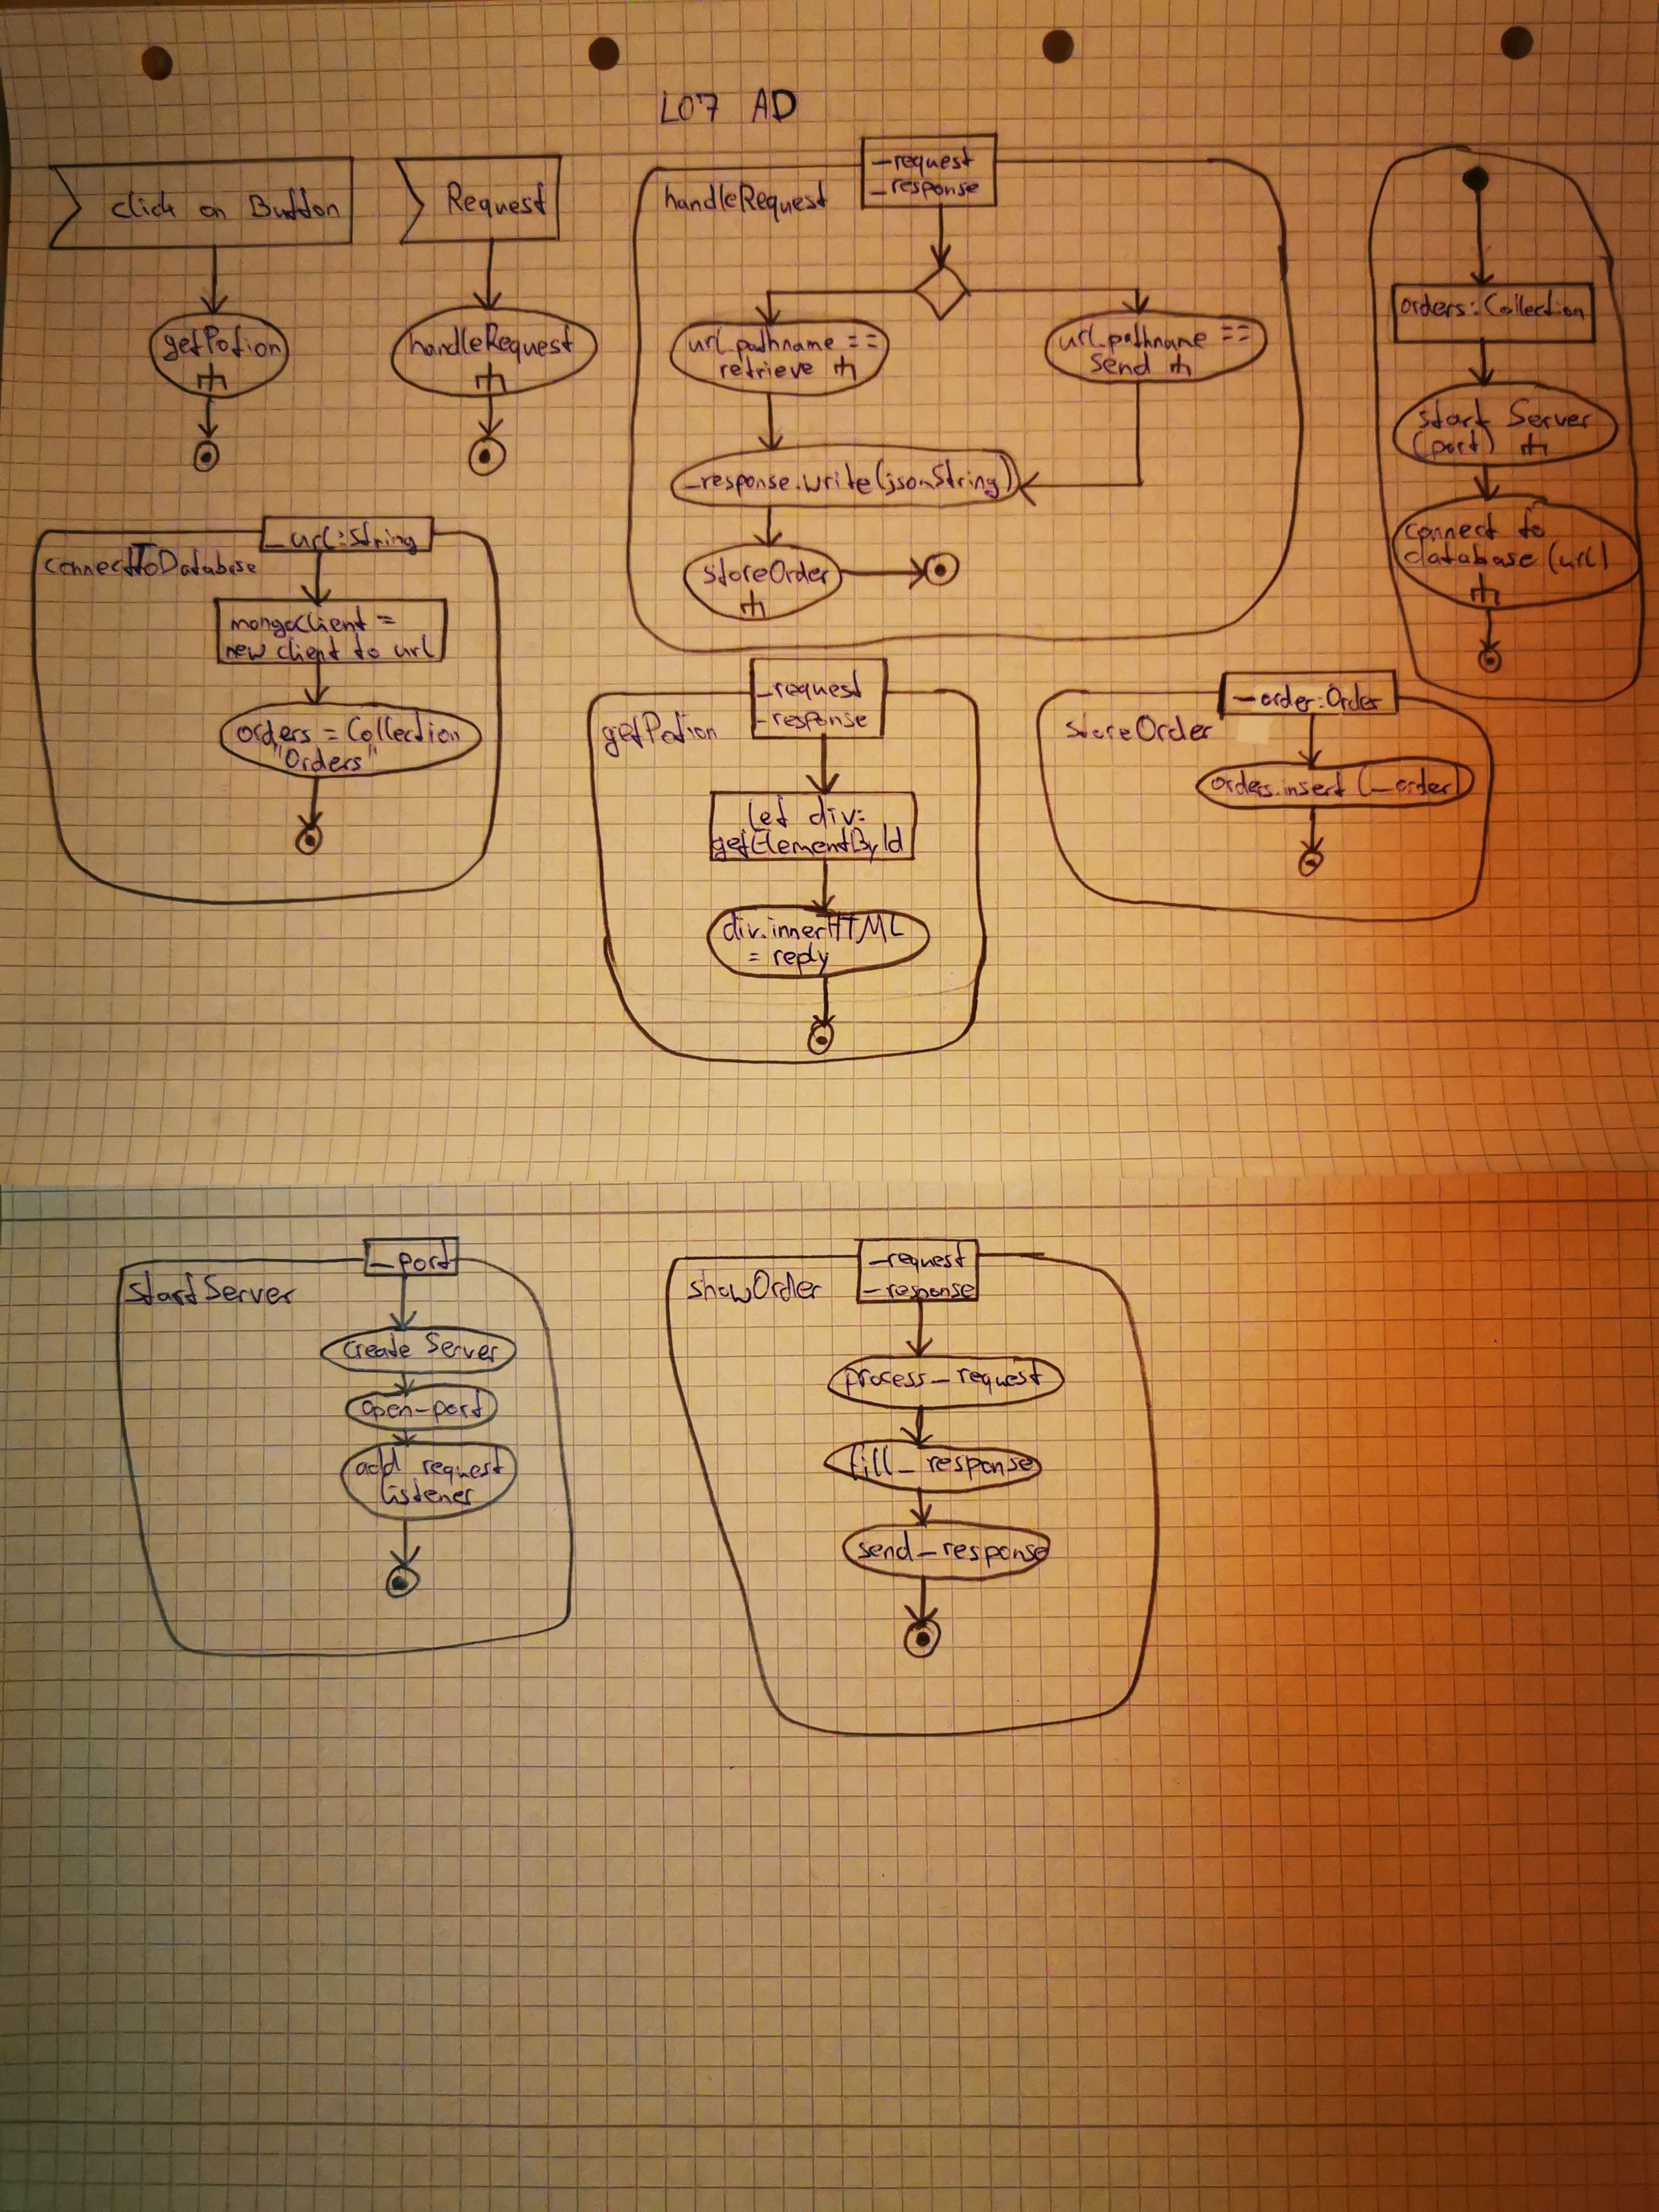 L07 AD
click on Button
getPotion
Request
handleRequest
handleRequest
_request
_response
url.pathname ==
retrieve
url.pathname ==
send
_response.write(jsonString)
storeOrder
orders: Collection
start Server
(port)
connect to
database (url)
connectToDatabase
_url: String
mongoClient =
new client to url
orders = Collection
"Orders"
getPotion
_request
_response
let div:
getElementById
div.innerHTML
= reply
storeOrder
_order: Order
orders.insert (_order)
startServer
_port
create Server
open_port
add request
listener
showOrder
_request
_response
process_request
fill_response
send_response